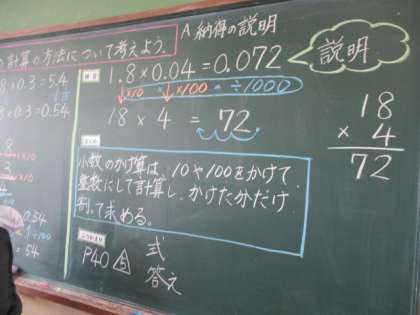 の計算の方法について考えよう。
8×0.3=5.4
8×0.3=0.54
×10
0.54
÷100
=54
A 納得の説明
説明
1.8×0.04=0.072
×10 ×100 = ÷1000
18 × 4 = 72
小数のかけ算は、10や100をかけて
整数にして計算し、かけた分だけ
割って求める。
P40 5
式
答え
18
× 4
72